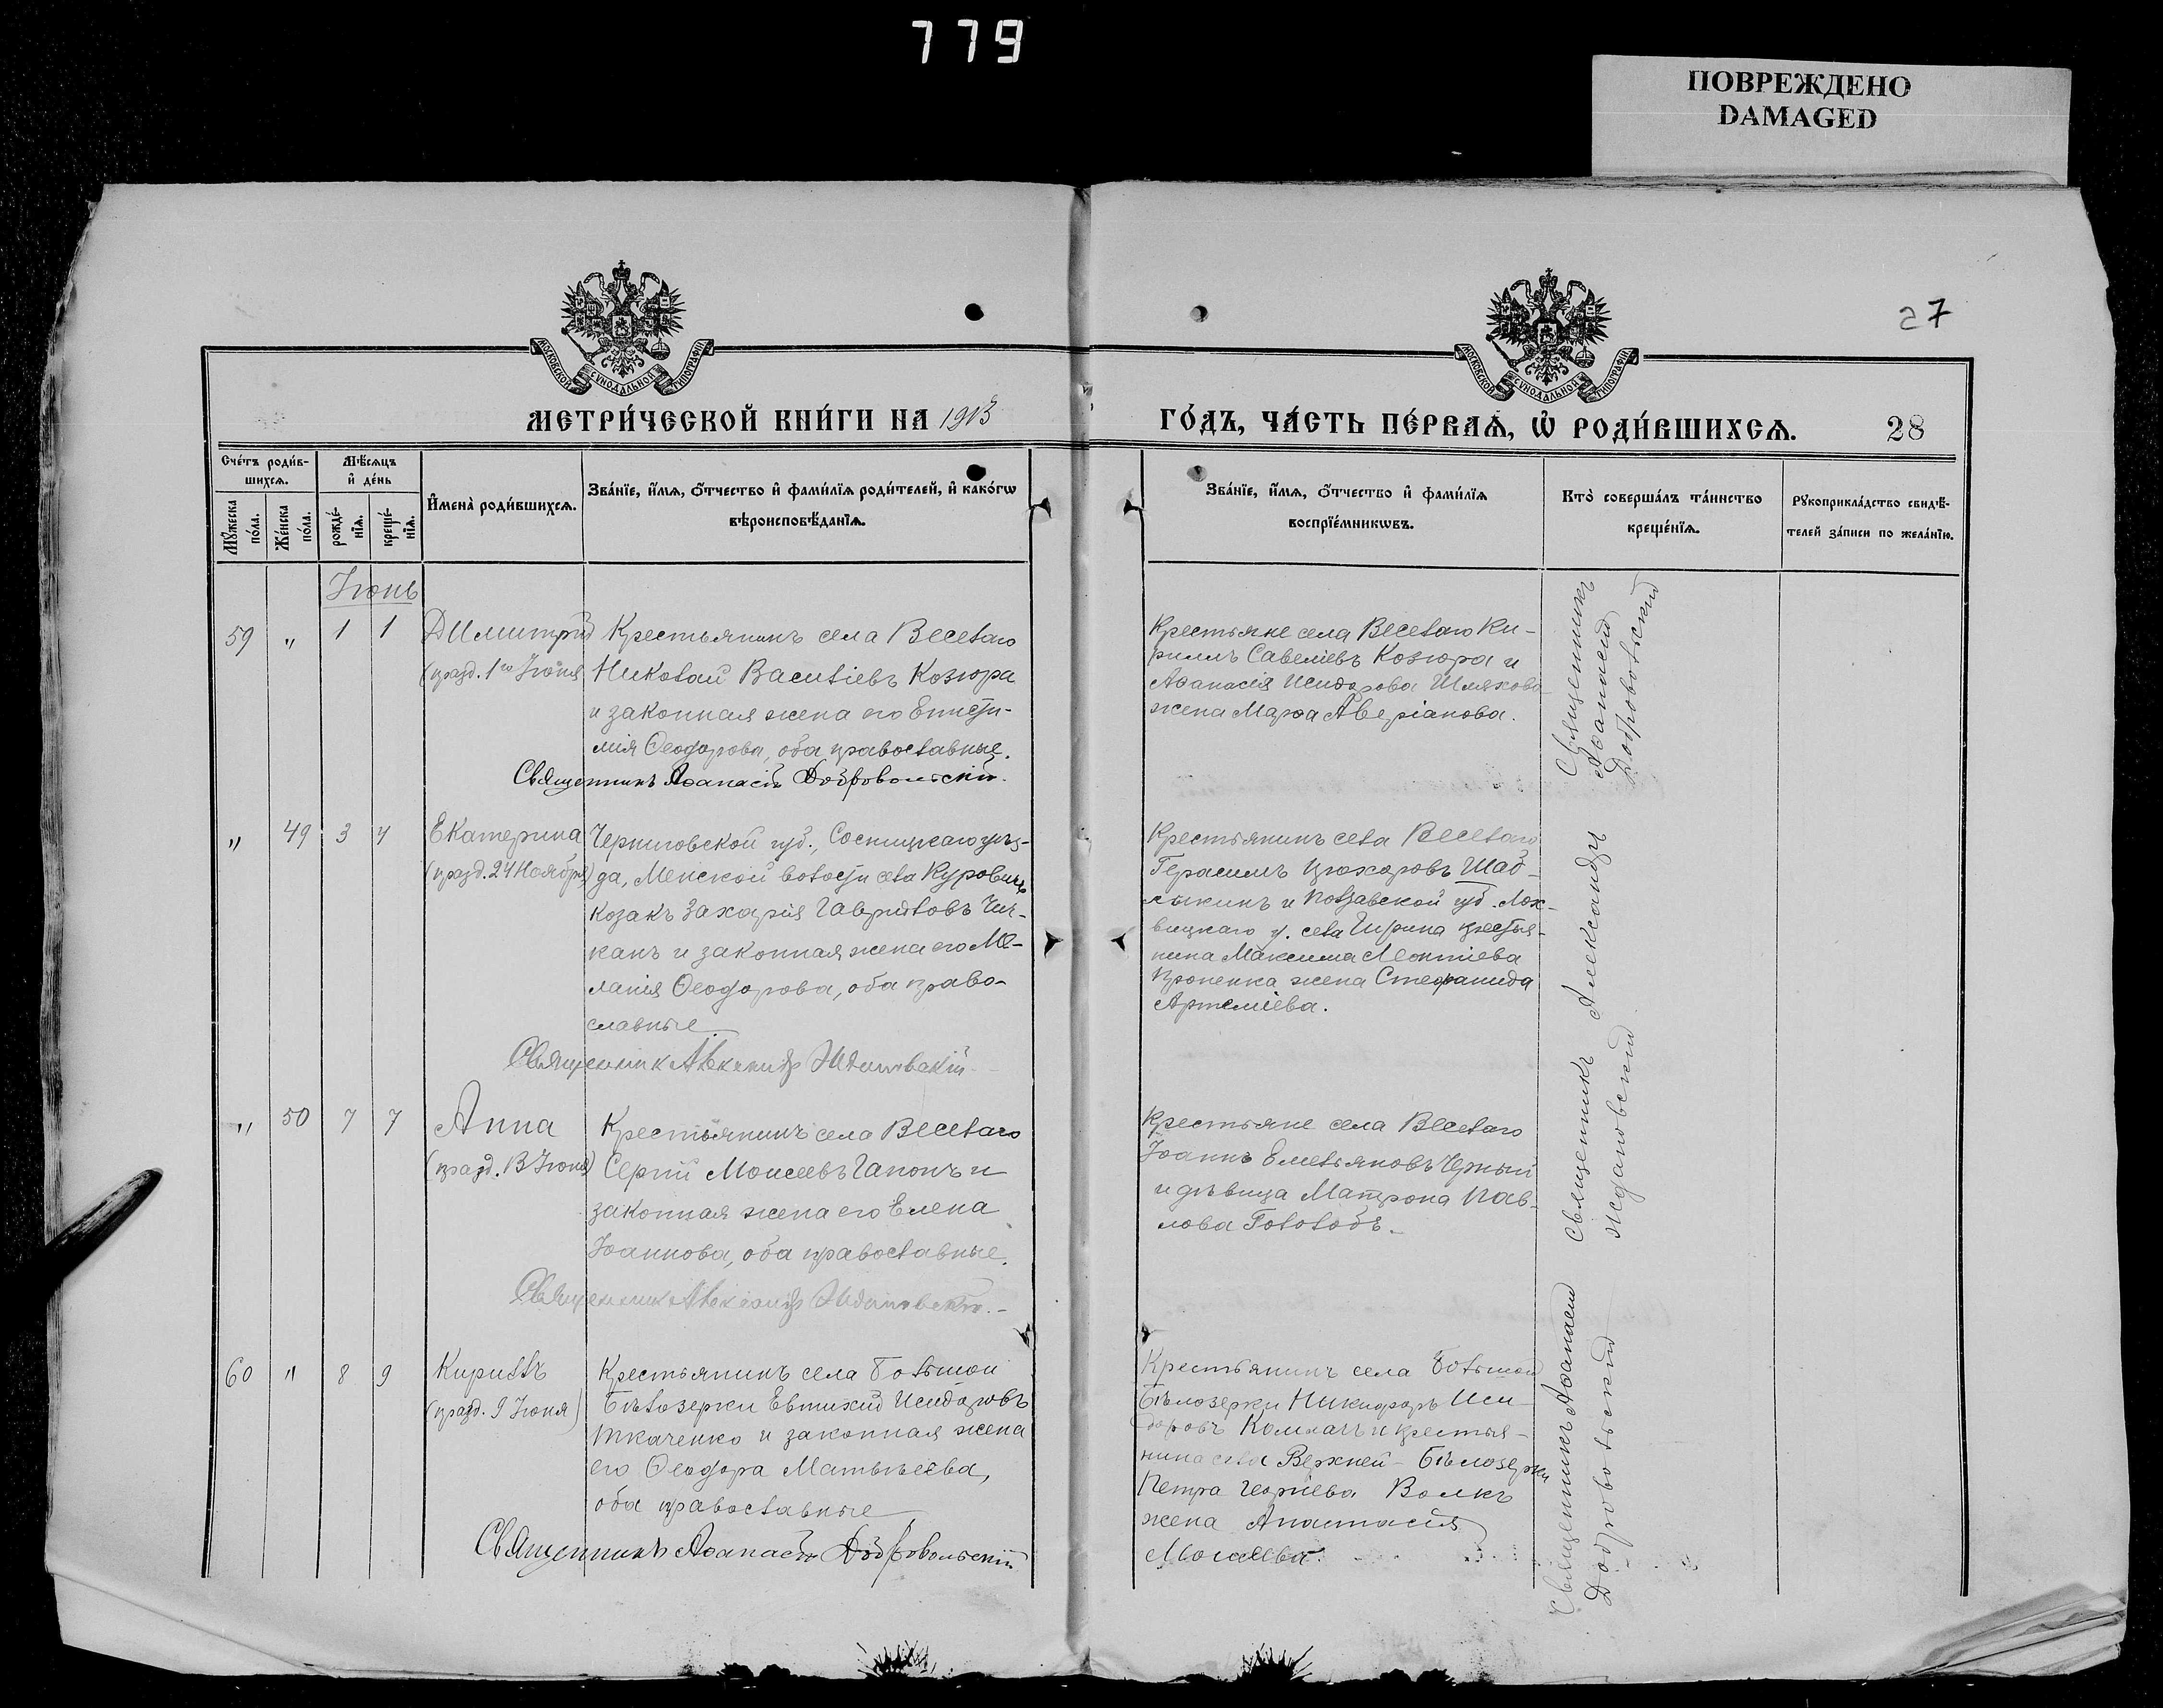 779
ПОВРЕЖДЕНО
DAMAGED
27
МОСКОВСКОЙ СУНОДАЛЬНОЙ ТИПОГРАФІИ
МОСКОВСКОЙ СУНОДАЛЬНОЙ ТИПОГРАФІИ
МЕТРИ́ЧЕСКОЙ КНИ́ГИ НА 1913
ГО́ДЪ, ЧА́СТЬ ПЕ́РВАѦ, Ѡ҆ РОДИ́ВШИХСѦ.
28
Сче́тъ роди́в-
шихсѧ.
Мꙋ́жеска по́ла.
Же́нска по́ла.
Мѣ́сѧцъ
и҆ де́нь
рожде́-
нїѧ.
креще́-
нїѧ.
И҆мена̀ роди́вшихсѧ.
Зва́нїе, и҆́мѧ, ѻ҆́тчество и҆ фами́лїѧ роди́телей, и҆ како́гѡ
вѣроисповѣ́данїѧ.
Зва́нїе, и҆́мѧ, ѻ҆́тчество и҆ фами́лїѧ
воспрїе́мникѡвъ.
Кто̀ соверша́лъ та́инство
креще́нїѧ.
Рꙋкоприкла́дство свидѣ́-
телей за́писи по жела́нїю.
Іюнь
59 " 1 1 Димитрій
(празд. 1го Іюня
Крестьянинъ села Веселаго
Николай Василіевъ Козюра
и законная жена его Еписти-
мія Ѳеодорова, оба православные.
Священникъ Аѳанасій Добровольскій.
Крестьяне села Веселаго Ки-
риллъ Савеліевъ Козюра и
Аѳанасія Исидорова Шляхова
жена Марѳа Аверіанова.
Священникъ
Аѳанасій
Добровольскій
" 49 3 4 Екатерина
(празд. 24 Ноября)
Черниговской губ., Сосницкаго уѣз-
да, Менской волости села Куровичъ
козакъ Захарія Гавриловъ Чич-
канъ и законная жена его Ме-
ланія Ѳеодорова, оба право-
славные.
Священник Александр Ждановскій.
Крестьянинъ села Веселаго
Герасимъ Прохоровъ Шаб-
лыкинъ и Полтавской губ. Лох-
вицкаго у. села Чирина крестья-
нина Максима Леонтіева
Кропенка жена Стефанида
Артеміева.
Священникъ Александръ
Ждановскій
" 50 7 7 Анна
(празд. 13 Іюня)
Крестьянинъ села Веселаго
Сергій Моисеевъ Гапонъ и
законная жена его Елена
Іоаннова, оба православные.
Священник Александр Ждановскій.
Крестьяне села Веселаго
Іоаннъ Емельяновъ Черный
и дѣвица Матрона Пав-
лова Гололобъ.
60 " 8 9 Кириллъ
(празд. 9 Іюня)
Крестьянинъ села Большой
Бѣлозерки Евтихій Исидоровъ
Ткаченко и законная жена
его Ѳеодора Матвѣева,
оба православные
Священникъ Аѳанасій Добровольскій
Крестьянинъ села Большой
Бѣлозерки Никифоръ Иси-
доровъ Колпакъ и крестья-
нина села Верхней-Бѣлозерки
Петра Георгіева Волкъ
жена Анастасія
Моисеева.
Священникъ Аѳанасій
Добровольскій